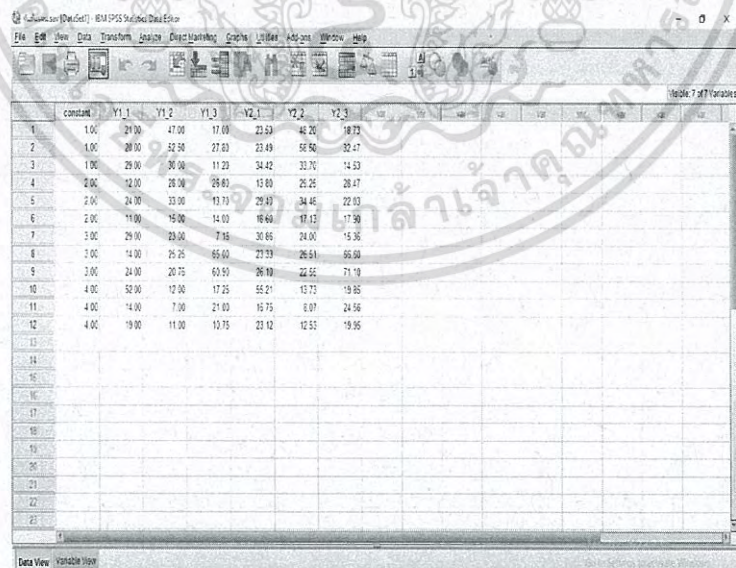 [DataSet1] - IBM SPSS Statistics Data Editor
File Edit View Data Transform Analyze Direct Marketing Graphs Utilities Add-ons Window Help
Visible: 7 of 7 Variables
constant Y1_1 Y1_2 Y1_3 Y2_1 Y2_2 Y2_3 var var var var var var var var
1 1.00 21.00 47.00 17.00 23.53 48.20 18.73
2 1.00 20.00 52.50 27.80 23.49 58.50 32.47
3 1.00 29.00 30.00 11.20 34.42 33.70 14.53
4 2.00 12.00 26.00 26.80 13.80 25.25 28.47
5 2.00 24.00 33.00 13.70 29.40 34.46 22.03
6 2.00 11.00 15.00 14.00 16.60 17.13 17.90
7 3.00 29.00 23.00 7.15 30.86 24.00 15.36
8 3.00 14.00 25.25 65.60 23.33 26.51 66.60
9 3.00 24.00 20.75 60.90 26.10 22.55 71.10
10 4.00 52.00 12.00 17.25 55.21 13.73 19.85
11 4.00 14.00 7.00 21.00 16.75 8.07 24.56
12 4.00 19.00 11.00 10.75 23.12 12.53 19.95
13
14
15
16
17
18
19
20
21
22
23
Data View Variable View